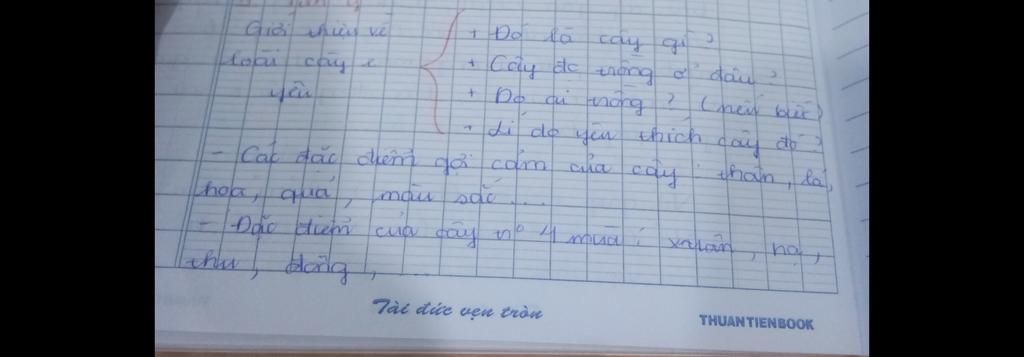 Giới thiệu về
loài cây e
yêu
+ Đó là cây gì?
+ Cây đc trồng ở đâu?
+ Do ai trồng? (nếu biết)
+ Lí do yêu thích cây đó?
- Các đặc điểm gợi cảm của cây: thân, lá,
hoa, quả, màu sắc...
- Đặc điểm của cây 4 mùa: xuân, hạ,
thu, đông,...
Tài đức vẹn tròn
THUANTIENBOOK